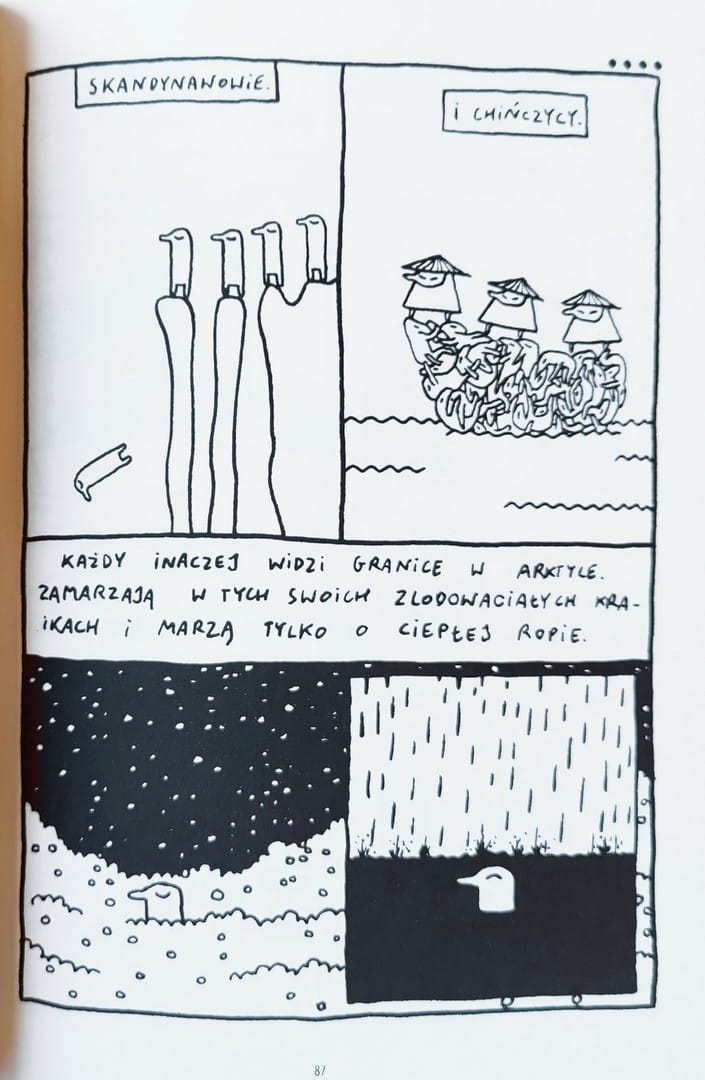 SKANDYNAWOWIE.
I CHIŃCZYCY.
KAŻDY INACZEJ WIDZI GRANICE W ARKTYCE.
ZAMARZAJĄ W TYCH SWOICH ZLODOWACIAŁYCH KRA-
IKACH I MARZĄ TYLKO O CIEPŁEJ ROPIE.
87